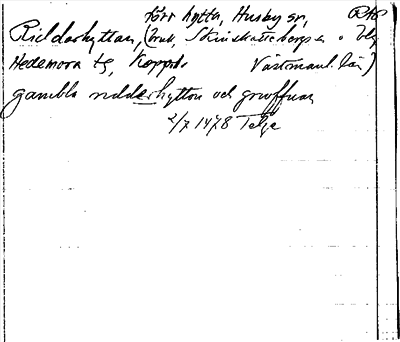 förr hytta, Husby sn,
Riddarhyttan, (bruk, Skinnskattebergs sn o
Hedemora tg, Koppb. Västmanl. län)
gambla riddarhytton och grwffuan
2/7 1478 Telje